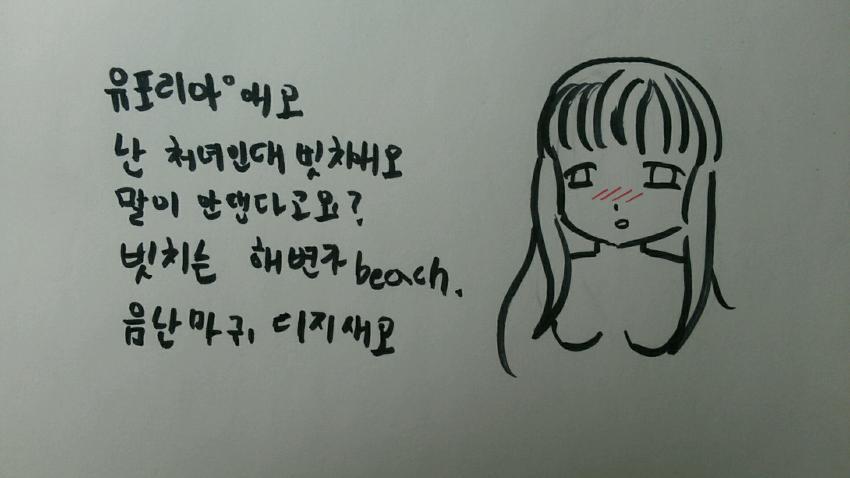 유포리아°에오
난 처녀인대 빗치새오
말이 안댄다고요?
빗치는 해변가 beach.
음난마귀, 디지새오